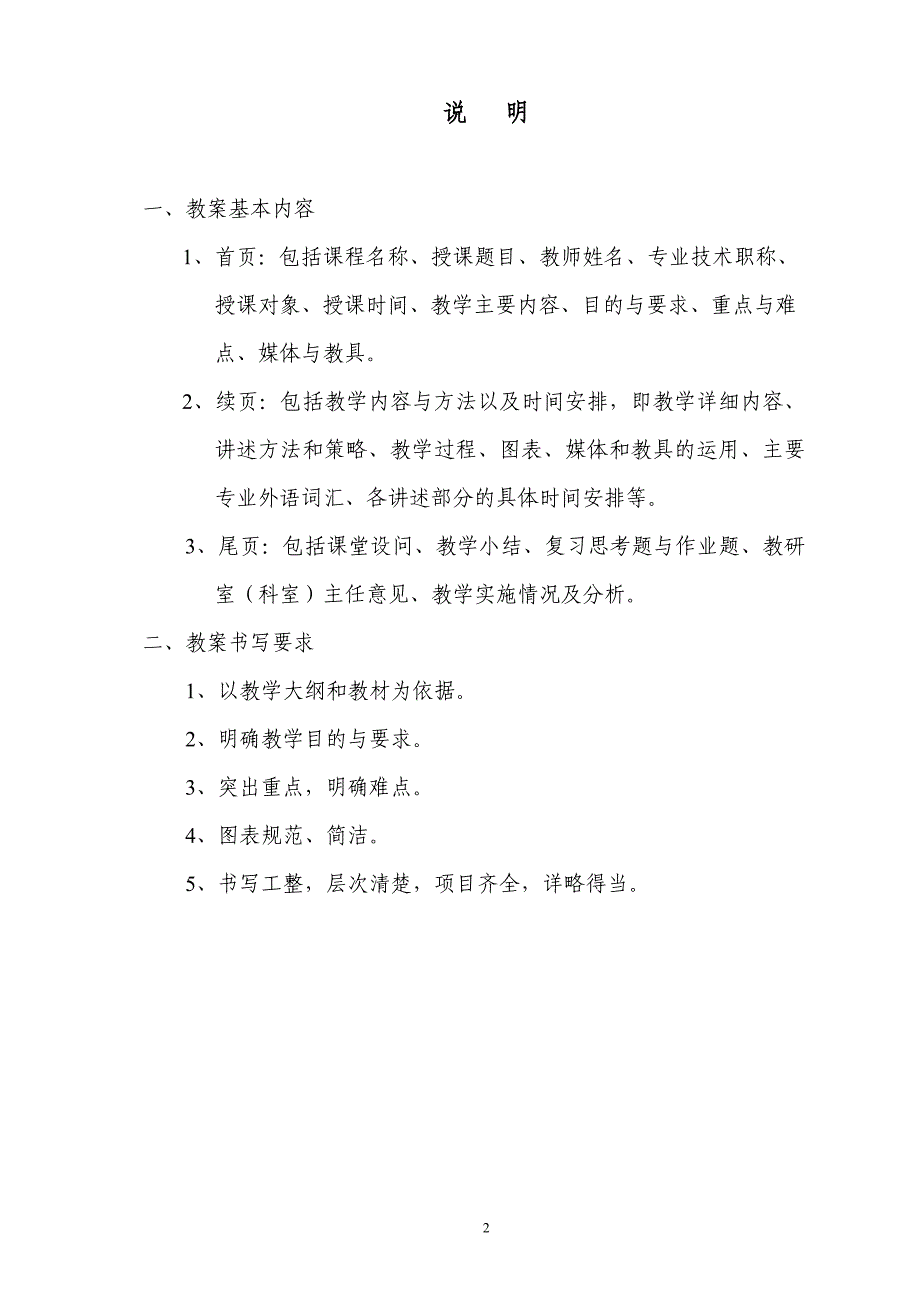 说 明
一、教案基本内容
1、首页：包括课程名称、授课题目、教师姓名、专业技术职称、
授课对象、授课时间、教学主要内容、目的与要求、重点与难
点、媒体与教具。
2、续页：包括教学内容与方法以及时间安排，即教学详细内容、
讲述方法和策略、教学过程、图表、媒体和教具的运用、主要
专业外语词汇、各讲述部分的具体时间安排等。
3、尾页：包括课堂设问、教学小结、复习思考题与作业题、教研
室（科室）主任意见、教学实施情况及分析。
二、教案书写要求
1、以教学大纲和教材为依据。
2、明确教学目的与要求。
3、突出重点，明确难点。
4、图表规范、简洁。
5、书写工整，层次清楚，项目齐全，详略得当。
2